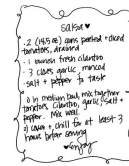 salsa ♥
. 2 (14.5 oz) cans peeled + diced
tomatoes, drained
. 1 bunch fresh cilantro
. 3 cloves garlic, minced
. salt + pepper to taste
1) In medium bowl, mix together
tomatoes, cilantro, garlic, salt +
pepper. Mix well.
2) cover + chill for at least 3
hours before serving
♥enjoy